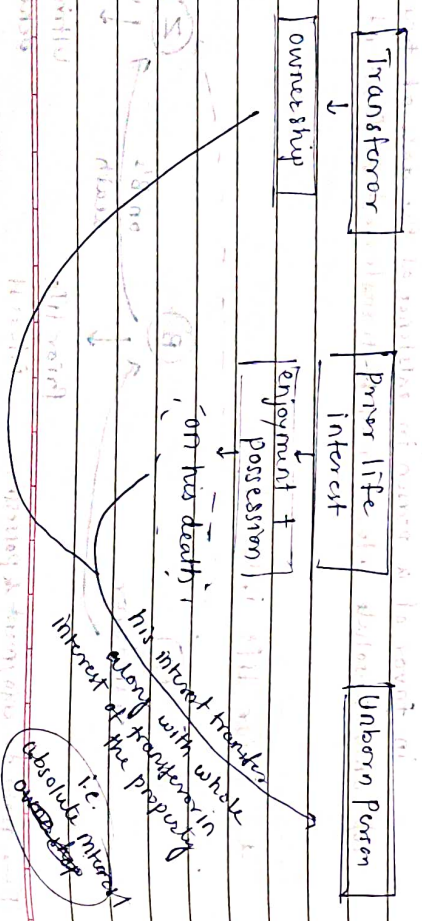 Transferor
↓
ownership
Prior life
interest
↓
enjoyment +
possession
↓
"on his death"
Unborn Person
his interest transfer
along with whole
interest of transferor in
the property
i.e.
absolute interest